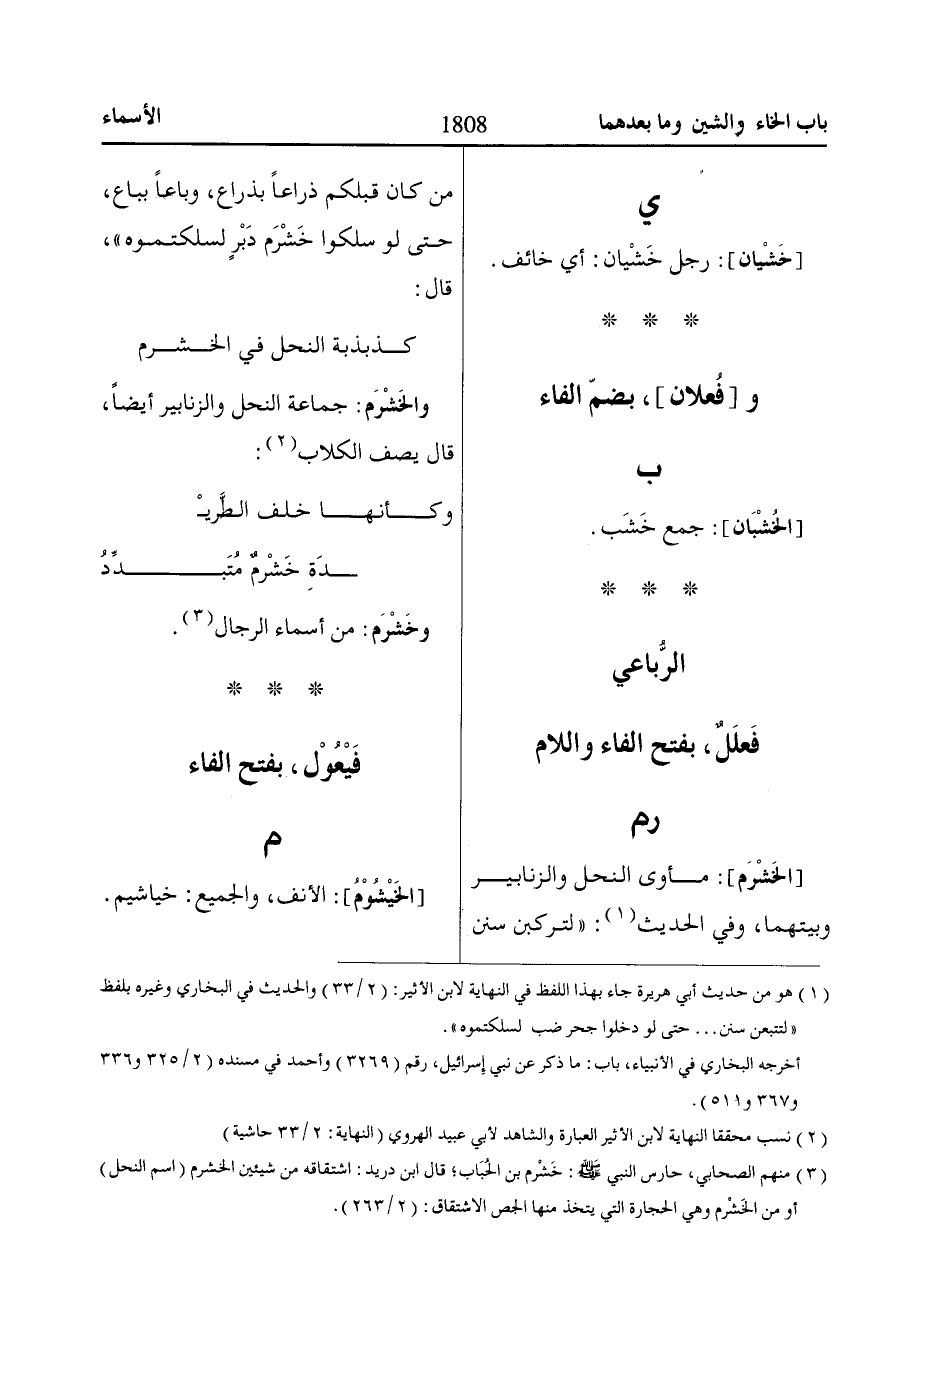 باب الخاء والشين وما بعدهما
1808
الأسماء
ي
[خَشْيان]: رجل خَشْيان: أي خائف.
* * *
و [فُعلان]، بضمّ الفاء
ب
[الخُشْبَان]: جمع خَشَب.
* * *
الرُّباعي
فَعلَلٌ، بفتح الفاء واللام
رم
[الخَشْرَم]: مـأوى النحل والزنابيـر
وبيتهما، وفي الحديث(١): «لتركبن سنن
من كان قبلكم ذراعاً بذراع، وباعاً بباع،
حتى لو سلكوا خَشْرَم دَبْرٍ لسلكتموه»،
قال:
كـذبذبة النحل في الخـشـرم
والخَشْرَم: جماعة النحل والزنابير أيضاً،
قال يصف الكلاب(٢):
وكـأنهـا خلف الطَّريـْ
ـدَةِ خَشْرمٌ مُتَبـدِّدُ
وخَشْرَم: من أسماء الرجال(٣).
* * *
فَيْعُوْل، بفتح الفاء
م
[الخَيْشُوْمُ]: الأنف، والجميع: خياشيم.
(١) هو من حديث أبي هريرة جاء بهذا اللفظ في النهاية لابن الأثير: (٣٣/٢) والحديث في البخاري وغيره بلفظ
«لتتبعن سنن... حتى لو دخلوا جحر ضب لسلكتموه».
أخرجه البخاري في الأنبياء، باب: ما ذكر عن نبي إسرائيل، رقم (٣٢٦٩) وأحمد في مسنده (٣٢٥/٢ و٣٣٦
و٣٦٧ و٥١١).
(٢) نسب محققا النهاية لابن الأثير العبارة والشاهد لأبي عبيد الهروي (النهاية: ٣٣/٢ حاشية)
(٣) منهم الصحابي، حارس النبي ﷺ: خَشْرم بن الحُبَاب؛ قال ابن دريد: اشتقاقه من شيئين الخشرم (اسم النحل)
أو من الخَشْرم وهي الحجارة التي يتخذ منها الجص الاشتقاق: (٢٦٣/٢).